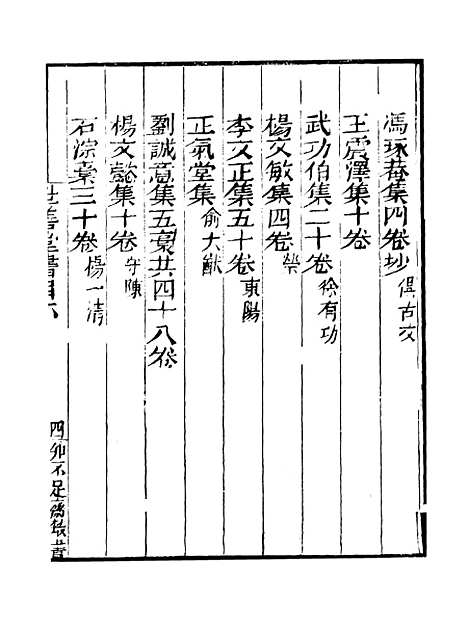 馮琢菴集四卷抄 俱古文
王震澤集十卷
武功伯集二十卷 徐有功
楊文敏集四卷 榮
李文正集五十卷 東陽
正氣堂集 俞大猷
劉誠意集五稾共四十八卷
楊文懿集十卷 守陳
石淙稾三十卷 楊一清
世善堂書目六
四 知不足齋叢書